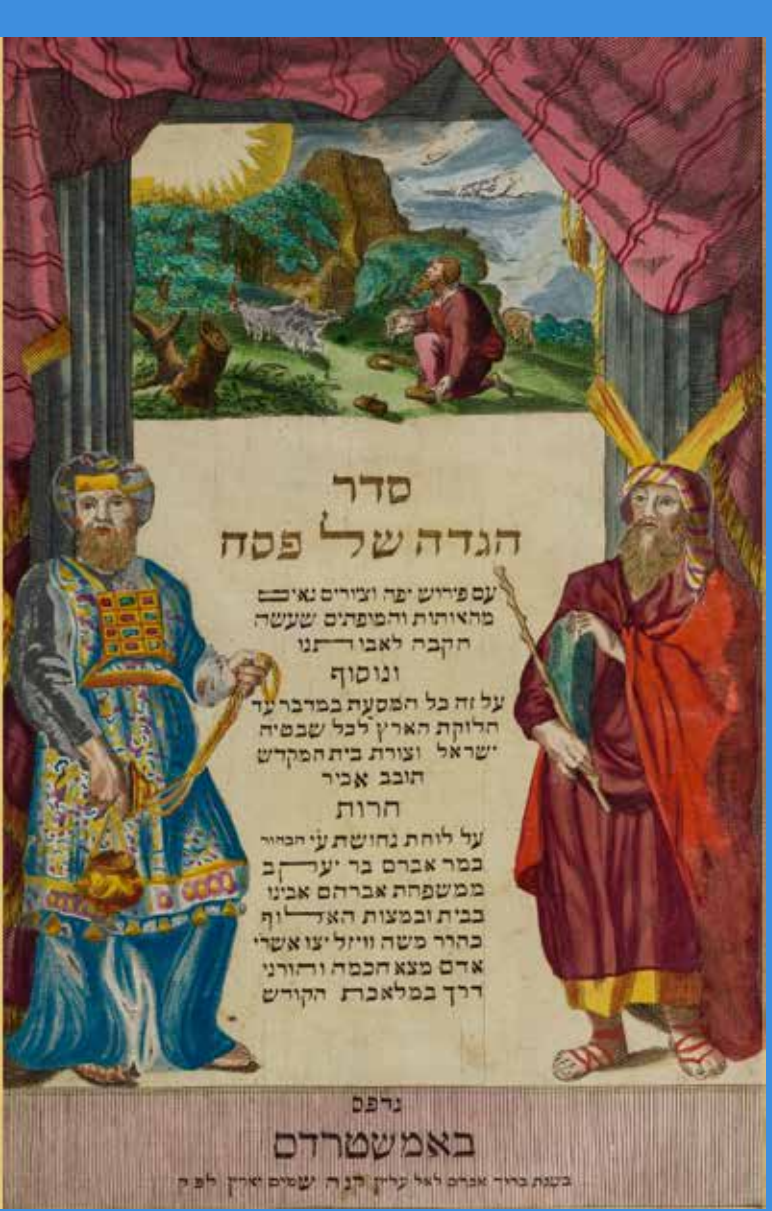 סדר
הגדה של פסח
עם פירוש יפה וציורים נאים
מהאותות והמופתים שעשה
הקבה לאבותנו
ונוסף
על זה כל המסעת במדבר עד
חלוקת הארץ לכל שבטיה
ישראל וצורת בית המקדש
תובב אכיר
חרות
על לוחת נחושת עי הבחור
כמר אברם בר יעקב
ממשפחת אברהם אבינו
בבית ובמצות האלוף
כהרר משה וויזל יצו אשרי
אדם מצא חכמה והורני
דרך במלאכת הקודש
נדפס
באמשטרדם
בשנת ברוך אברם לאל עליון קנה שמים וארץ לפק